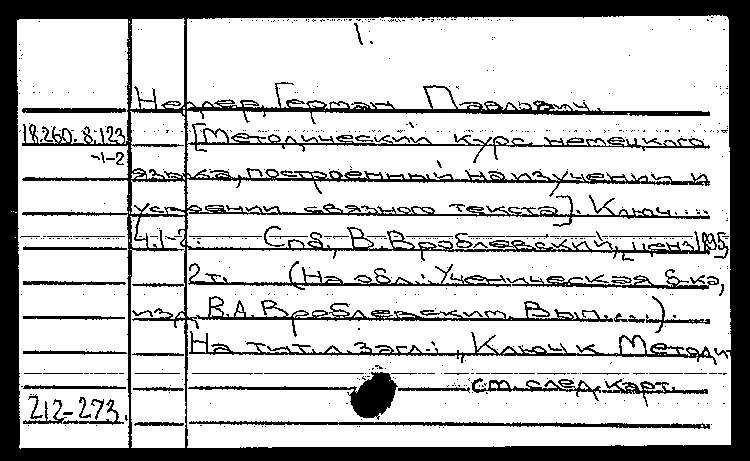 1.
Недлер, Герман Павлович.
18.260.8.123 [Методический курс немецкого
-1-2
языка, построенный на изучении и
усвоении связного текста]. Ключ....
Ч.1-2. Спб., В. Врублевский, ценз. 1895,
2 т. (На обл.: Ученическая б-ка,
изд. В.А. Врублевским. Вып....).
На тит. л. загл.: „Ключ к Методи
см. след. карт.
212-273.